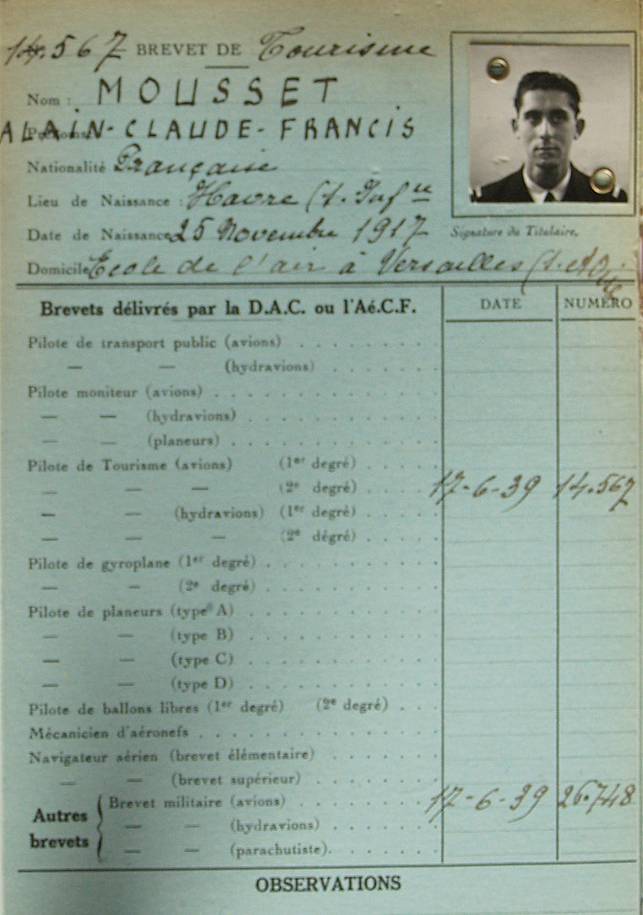 14.567 BREVET DE Tourisme
Nom : MOUSSET
Prénoms : ALAIN-CLAUDE-FRANCIS
Nationalité Française
Lieu de Naissance : Havre (S. Infre
Date de Naissance 25 Novembre 1917
Signature du Titulaire,
Domicile Ecole de l'air à Versailles (S. et Oise
Brevets délivrés par la D.A.C. ou l'Aé.C.F. DATE NUMÉRO
Pilote de transport public (avions) . . . . . . .
— — (hydravions) . . . . . .
Pilote moniteur (avions) . . . . . . . . . . .
— — (hydravions) . . . . . . . . . .
— — (planeurs) . . . . . . . . . . .
Pilote de Tourisme (avions) (1er degré) . . . .
— — — (2e degré) . . . . 17-6-39 14.567
— — (hydravions) (1er degré) . . . .
— — — (2e dégré) . . . .
Pilote de gyroplane (1er degré) . . . . . . . . .
— — (2e degré) . . . . . . . . .
Pilote de planeurs (type A) . . . . . . . . . .
— — (type B) . . . . . . . . . .
— — (type C) . . . . . . . . . .
— — (type D) . . . . . . . . . .
Pilote de ballons libres (1er degré) (2e degré) . . .
Mécanicien d'aéronefs . . . . . . . . . . . .
Navigateur aérien (brevet élémentaire) . . . . . .
— — (brevet supérieur) . . . . . . .
Autres brevets { Brevet militaire (avions) . . . . . . . 17-6-39 26.748
— — (hydravions) . . . . . .
— — (parachutiste). . . . . .
OBSERVATIONS